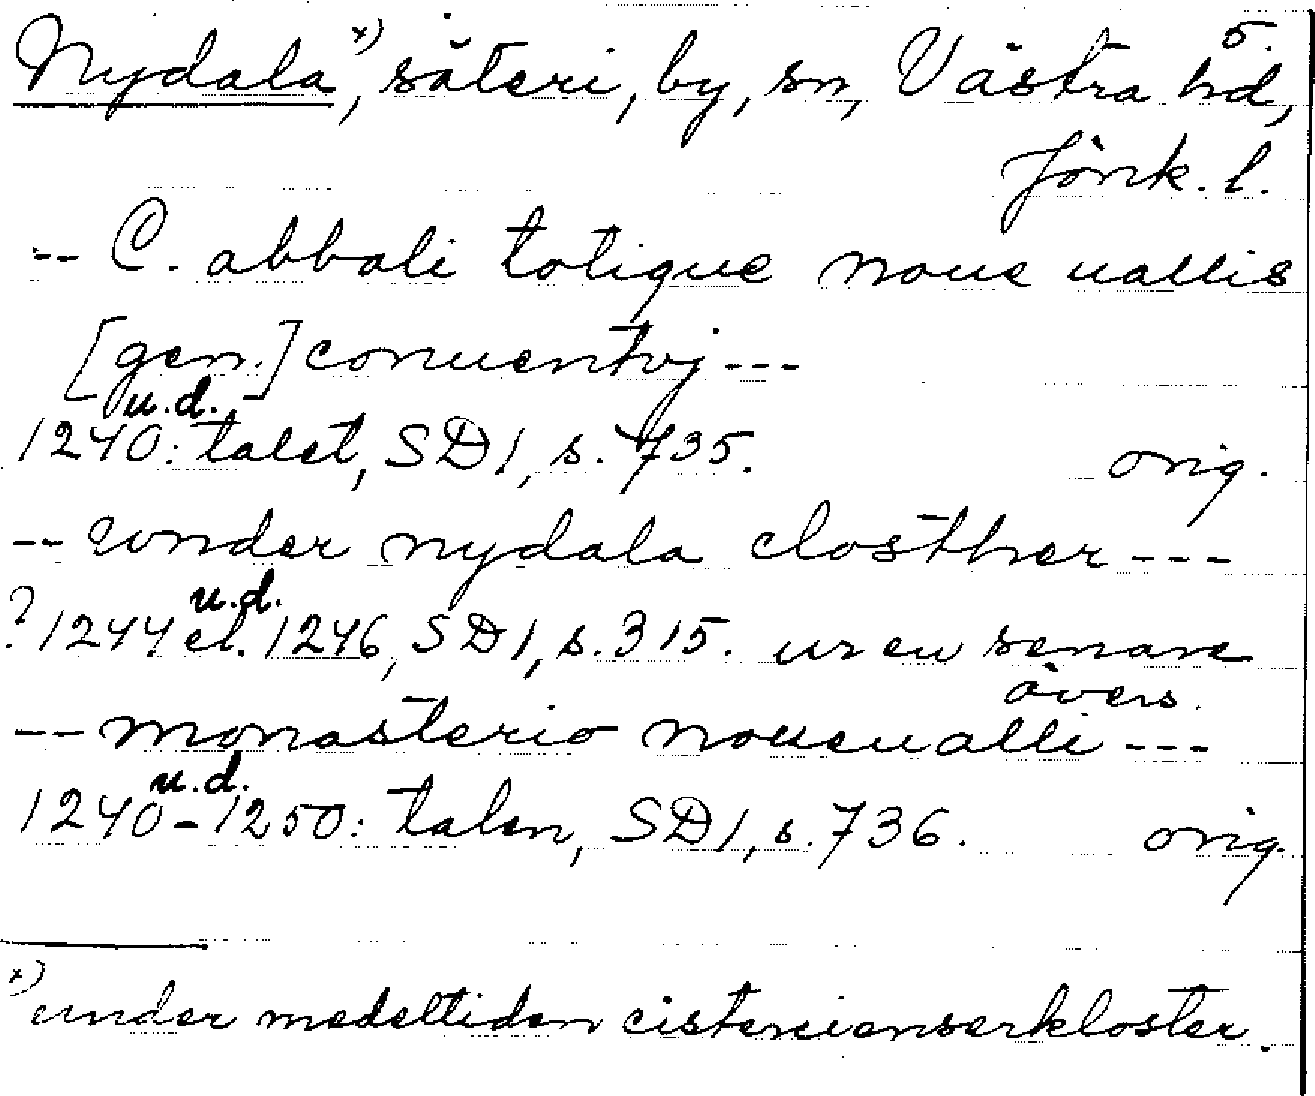 5.
Nydala x), säteri, by, sn, Västra hd,
Jönk. l.
-- C. abbati totique noue uallis
[gen.] conuentvj ---
u.d.
1240: talet, SD 1, s. 735. orig.
-- wnder nydala closther ---
u.d.
? 1244 el. 1246, SD 1, s. 315. ur en senare
övers.
-- monasterio noueualli ---
u.d.
1240-1250: talen, SD 1, s. 736. orig.
x) under medeltiden cistercienserkloster.